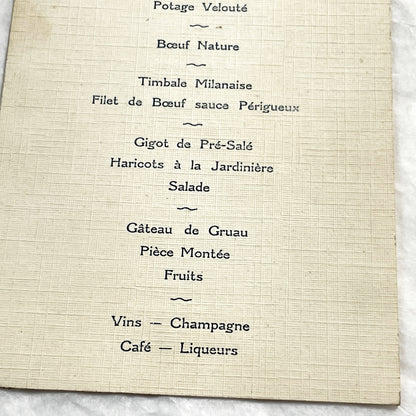 Potage Velouté
Bœuf Nature
Timbale Milanaise
Filet de Bœuf sauce Périgueux
Gigot de Pré-Salé
Haricots à la Jardinière
Salade
Gâteau de Gruau
Pièce Montée
Fruits
Vins — Champagne
Café — Liqueurs